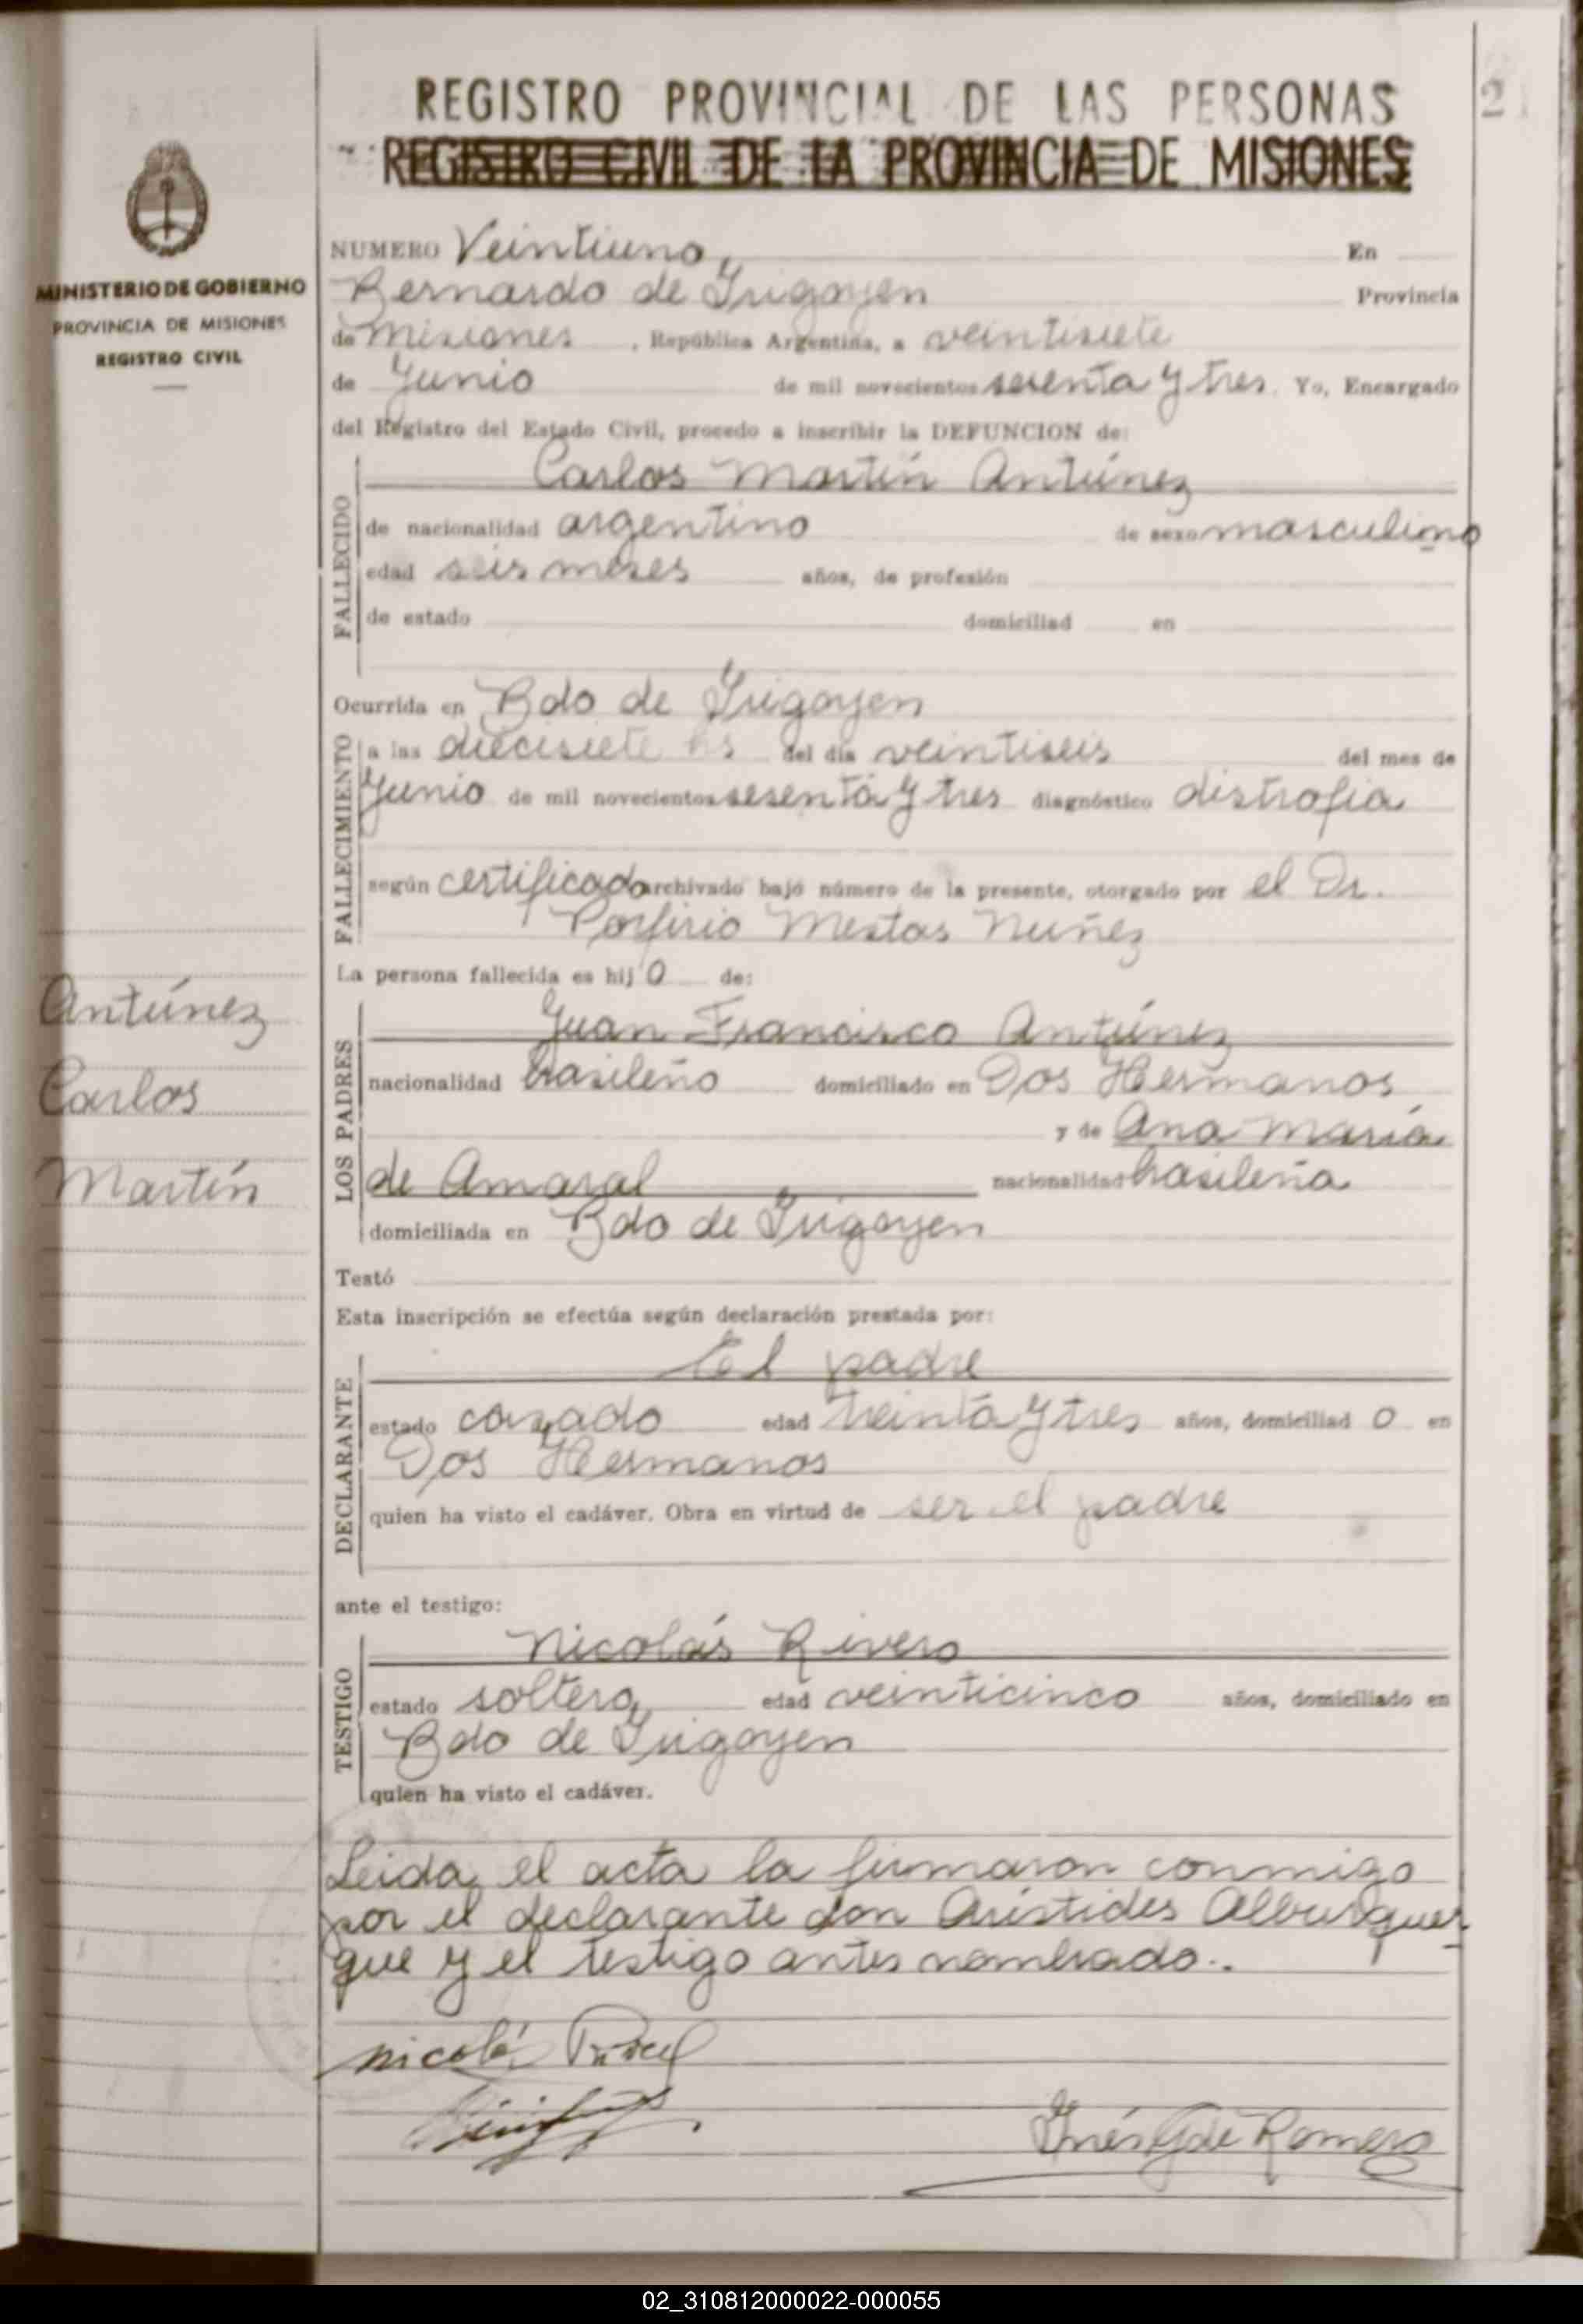 REGISTRO PROVINCIAL DE LAS PERSONAS
REGISTRO CIVIL DE LA PROVINCIA DE MISIONES
2
MINISTERIO DE GOBIERNO
PROVINCIA DE MISIONES
REGISTRO CIVIL
NUMERO Veintiuno, En
Bernardo de Irigoyen Provincia
de Misiones, República Argentina, a veintisiete
de Junio de mil novecientos sesenta y tres. Yo, Encargado
del Registro del Estado Civil, procedo a inscribir la DEFUNCION de:
FALLECIDO
Carlos Martín Antúnez
de nacionalidad argentino de sexo masculino
edad seis meses años, de profesión
de estado domiciliad en
Ocurrida en Bdo de Irigoyen
FALLECIMIENTO
a las diecisiete hs del día veintiseis del mes de
Junio de mil novecientos sesenta y tres diagnóstico distrofia
según certificado archivado bajo número de la presente, otorgado por el Dr.
Porfirio Mestas Nuñez
La persona fallecida es hijo de:
LOS PADRES
Juan Francisco Antúnez
nacionalidad brasileño domiciliado en Dos Hermanos
y de Ana María
de Amaral nacionalidad brasileña
domiciliada en Bdo de Irigoyen
Antúnez
Carlos
Martín
Testó
Esta inscripción se efectúa según declaración prestada por:
DECLARANTE
El padre
estado casado edad treinta y tres años, domiciliado en
Dos Hermanos
quien ha visto el cadáver. Obra en virtud de ser el padre
ante el testigo:
TESTIGO
Nicolás Rivero
estado soltero, edad veinticinco años, domiciliado en
Bdo de Irigoyen
quien ha visto el cadáver.
Leida el acta la firmaron conmigo
por el declarante don Arístides Alburquer-
que y el testigo antes nombrado..
Nicolás
Inés G de Romero
02_310812000022-000055